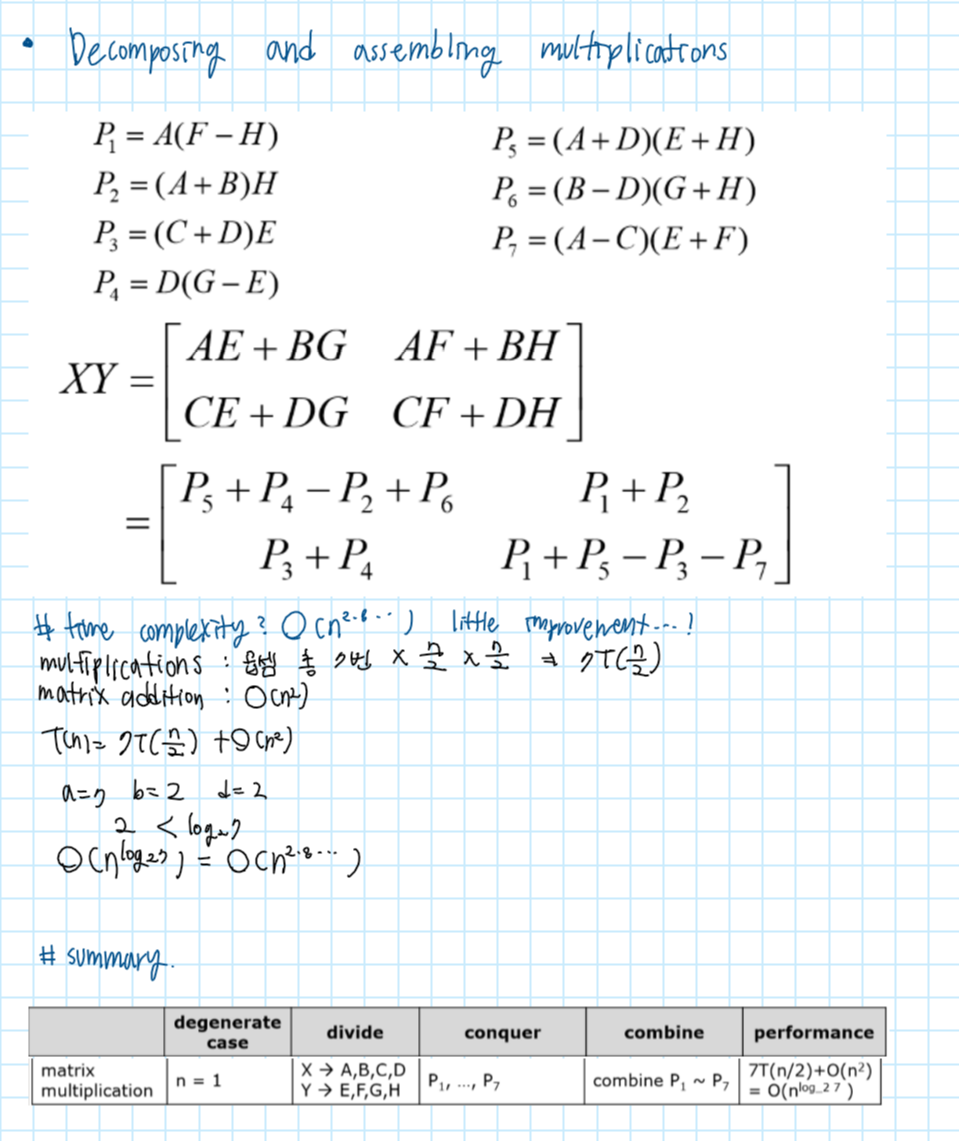 • Decomposing and assembling multiplications
P₁ = A(F − H)
P₂ = (A + B)H
P₃ = (C + D)E
P₄ = D(G − E)
P₅ = (A + D)(E + H)
P₆ = (B − D)(G + H)
P₇ = (A − C)(E + F)
XY = [ AE + BG AF + BH
CE + DG CF + DH ]
= [ P₅ + P₄ − P₂ + P₆ P₁ + P₂
P₃ + P₄ P₁ + P₅ − P₃ − P₇ ]
# time complexity? O(n^2.8...) little improvement...!
multiplications : 곱셈 총 7번 × n/2 × n/2 ⇒ 7T(n/2)
matrix addition : O(n²)
T(n)= 7T(n/2) + O(n²)
a=7 b=2 d=2
2 < log₂7
O(n^log₂7) = O(n^2.8...)
# summary.
degenerate case divide conquer combine performance
matrix multiplication n = 1 X → A,B,C,D Y → E,F,G,H P₁, ..., P₇ combine P₁ ~ P₇ 7T(n/2)+O(n²) = O(n^log_2 7)